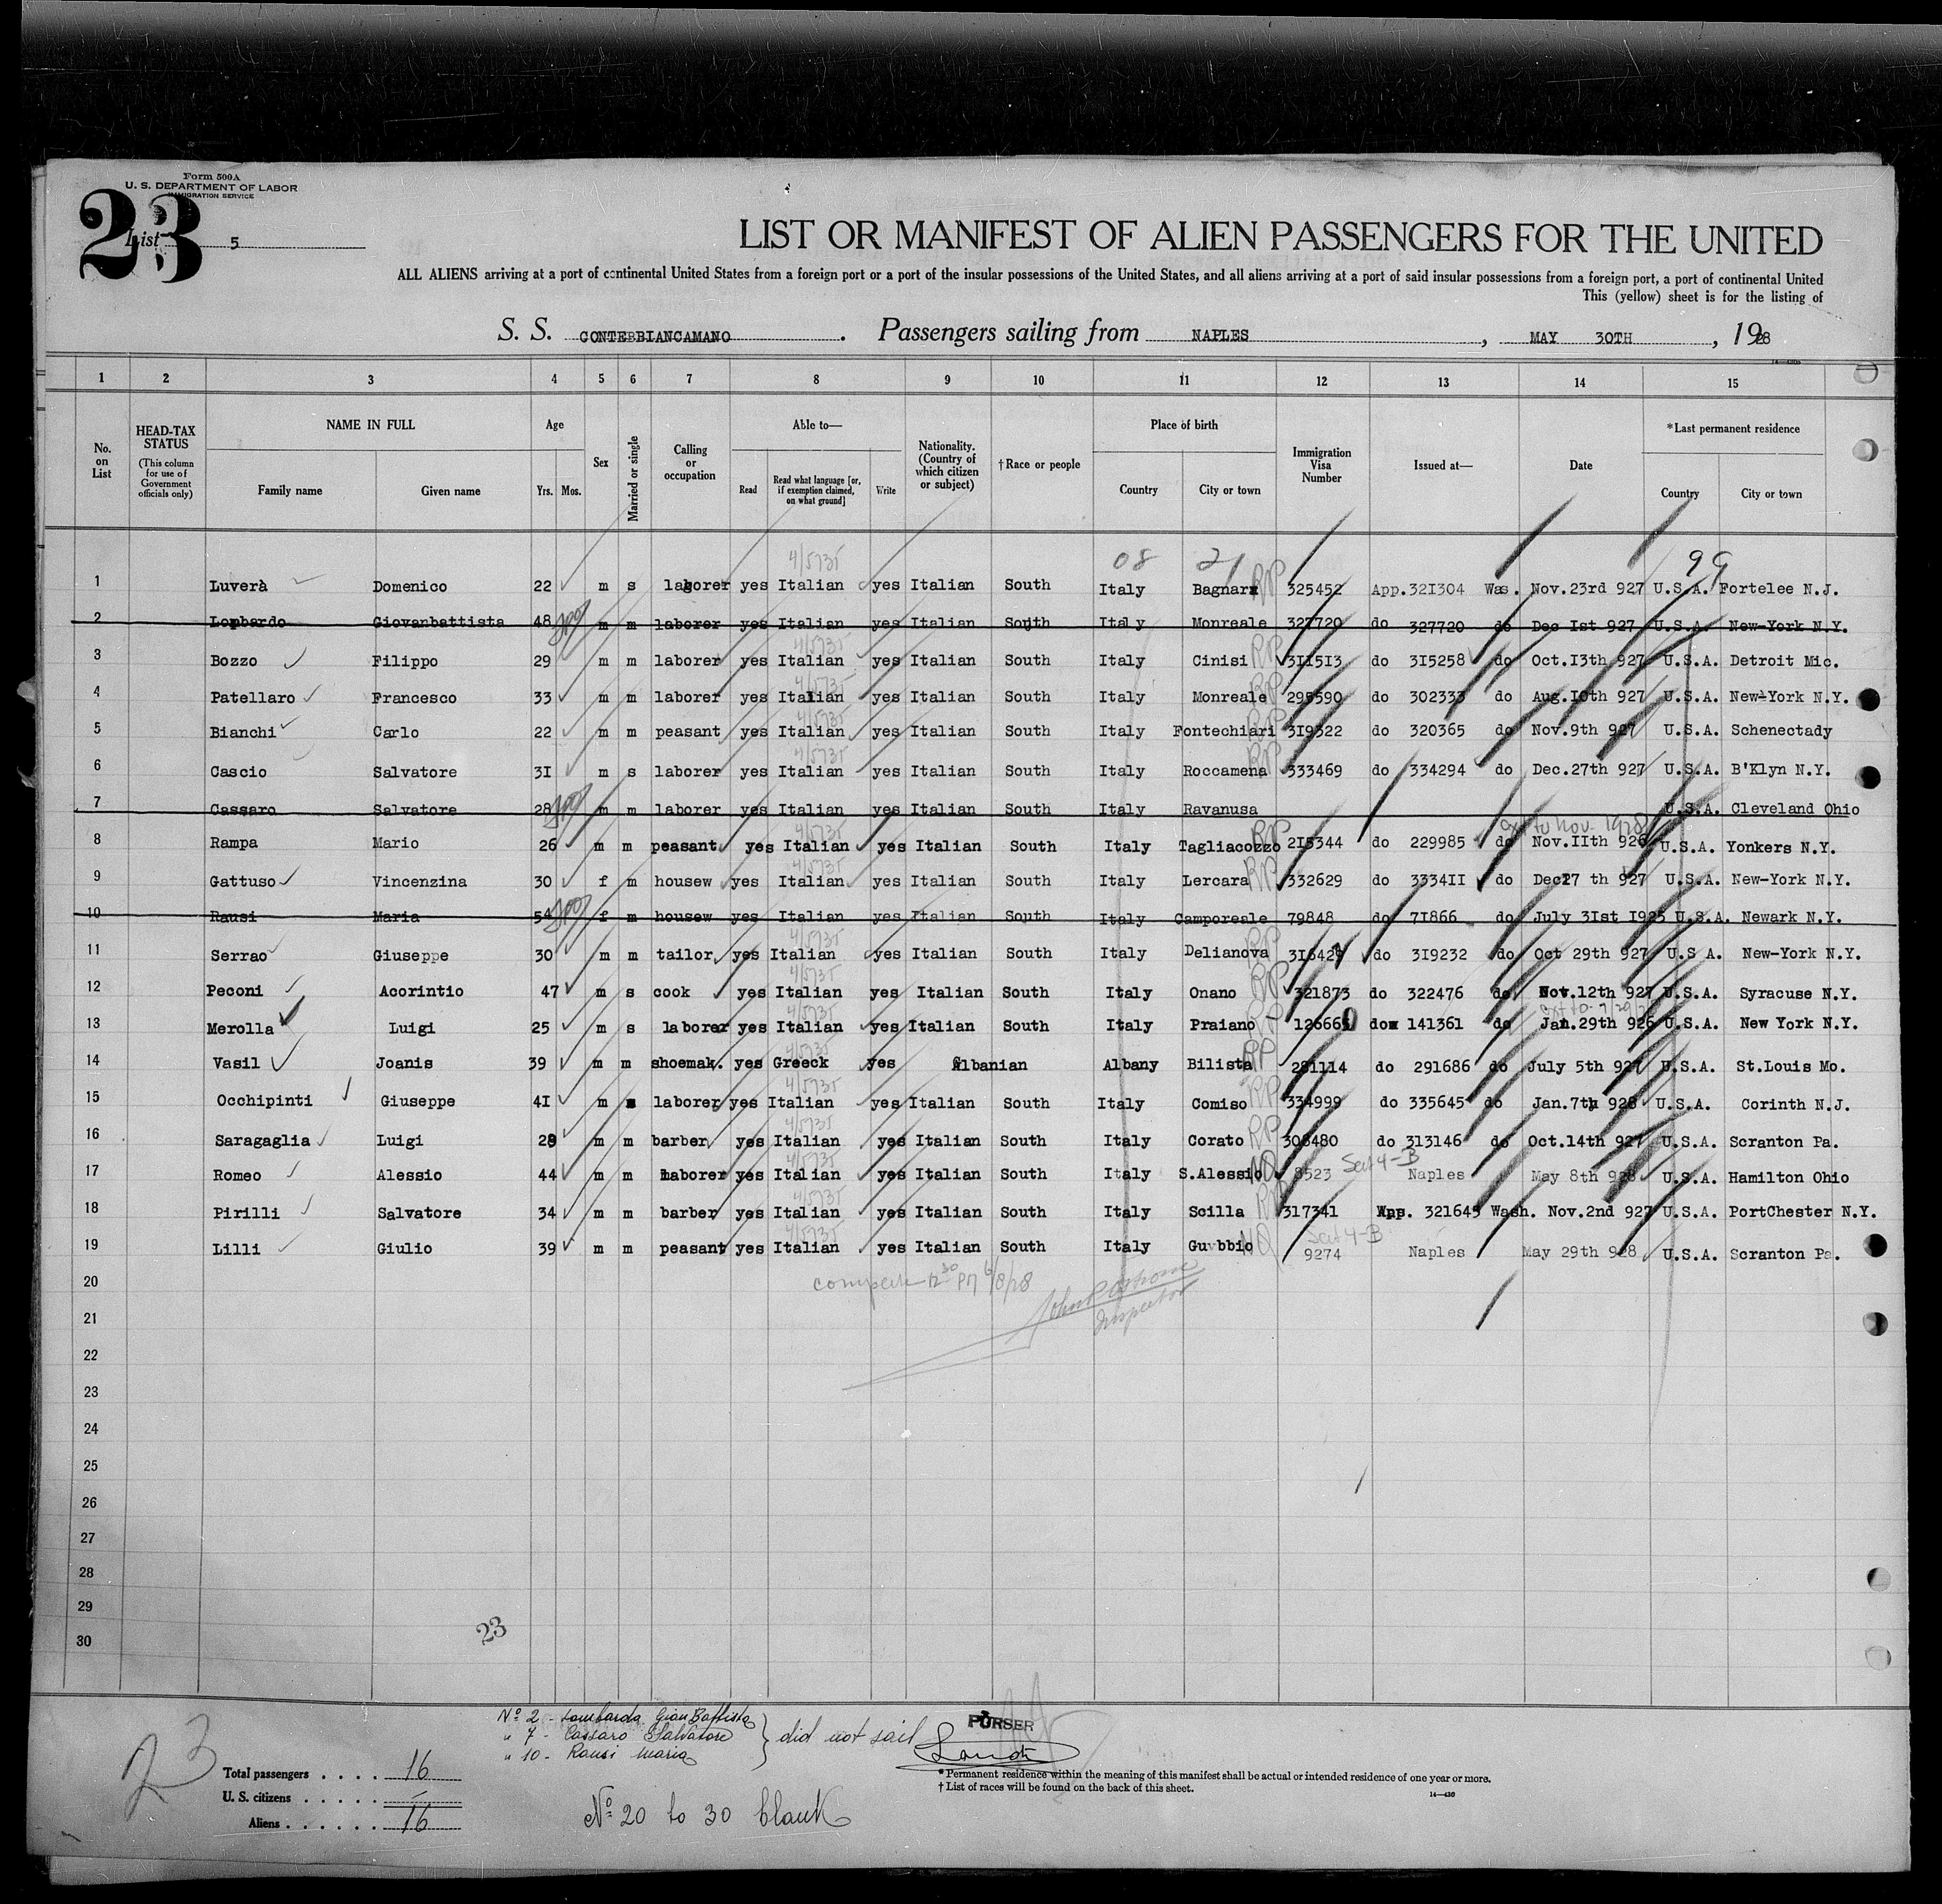 Form 500A
U. S. DEPARTMENT OF LABOR
IMMIGRATION SERVICE
23
List 5
LIST OR MANIFEST OF ALIEN PASSENGERS FOR THE UNITED
ALL ALIENS arriving at a port of continental United States from a foreign port or a port of the insular possessions of the United States, and all aliens arriving at a port of said insular possessions from a foreign port, a port of continental United
This (yellow) sheet is for the listing of
S. S. CONTE BIANCAMANO . Passengers sailing from NAPLES , MAY 30TH , 1928
1 2 3 4 5 6 7 8 9 10 11 12 13 14 15
No. on List
HEAD-TAX STATUS
(This column for use of Government officials only)
NAME IN FULL
Family name Given name
Age
Yrs. Mos.
Sex
Married or single
Calling or occupation
Able to—
Read
Read what language [or, if exemption claimed, on what ground]
Write
Nationality. (Country of which citizen or subject)
†Race or people
Place of birth
Country City or town
Immigration Visa Number
Issued at—
Date
*Last permanent residence
Country City or town
08 21 99
1 Luverà Domenico 22 m s laborer yes Italian yes Italian South Italy Bagnara RP 325452 App.321304 Was. Nov.23rd 927 U.S.A. Fortelee N.J.
2 Lombardo Giovanbattista 48 m m laborer yes Italian yes Italian South Italy Monreale 327720 do 327720 do Dec Ist 927 U.S.A. New-York N.Y.
3 Bozzo Filippo 29 m m laborer yes Italian yes Italian South Italy Cinisi RP 311513 do 315258 do Oct.13th 927 U.S.A. Detroit Mic.
4 Patellaro Francesco 33 m m laborer yes Italian yes Italian South Italy Monreale RP 295590 do 302333 do Aug.10th 927 U.S.A. New-York N.Y.
5 Bianchi Carlo 22 m m peasant yes Italian yes Italian South Italy Fontechiari RP 319322 do 320365 do Nov.9th 927 U.S.A. Schenectady
6 Cascio Salvatore 31 m s laborer yes Italian yes Italian South Italy Roccamena RP 333469 do 334294 do Dec.27th 927 U.S.A. B'Klyn N.Y.
7 Cassaro Salvatore 28 m m laborer yes Italian yes Italian South Italy Ravanusa U.S.A. Cleveland Ohio
to Nov. 1928
8 Rampa Mario 26 m m peasant yes Italian yes Italian South Italy Tagliacozzo RP 215344 do 229985 do Nov.IIth 926 U.S.A. Yonkers N.Y.
9 Gattuso Vincenzina 30 f m housew yes Italian yes Italian South Italy Lercara RP 332629 do 333411 do Dec27 th 927 U.S.A. New-York N.Y.
10 Rausi Maria 54 f m housew yes Italian yes Italian South Italy Camporeale 79848 do 71866 do July 31st 1925 U.S.A. Newark N.Y.
11 Serrao Giuseppe 30 m m tailor yes Italian yes Italian South Italy Delianova RP do 319232 do Oct 29th 927 U.S A. New-York N.Y.
12 Peconi Acorintio 47 m s cook yes Italian yes Italian South Italy Onano RP 321873 do 322476 do Nov.12th 927 U.S.A. Syracuse N.Y.
13 Merolla Luigi 25 m s laborer yes Italian yes Italian South Italy Praiano RP 126660 do 141361 do Jan.29th 926 U.S.A. New York N.Y.
14 Vasil Joanis 39 m m shoemak. yes Greeck yes Albanian Albany Bilista RP 281114 do 291686 do July 5th 927 U.S.A. St.Louis Mo.
15 Occhipinti Giuseppe 41 m laborer yes Italian yes Italian South Italy Comiso RP 334999 do 335645 do Jan.7th 928 U.S.A. Corinth N.J.
16 Saragaglia Luigi 28 m m barber yes Italian yes Italian South Italy Corato RP 308480 do 313146 do Oct.14th 927 U.S.A. Scranton Pa.
17 Romeo Alessio 44 m m laborer yes Italian yes Italian South Italy S.Alessio NQ 8523 Sect 4-B Naples May 8th 928 U.S.A. Hamilton Ohio
18 Pirilli Salvatore 34 m m barber yes Italian yes Italian South Italy Scilla RP 317341 App. 321645 Wash. Nov.2nd 927 U.S.A. PortChester N.Y.
19 Lilli Giulio 39 m m peasant yes Italian yes Italian South Italy Gubbio NQ Sect 4-B 9274 Naples May 29th 928 U.S.A. Scranton Pa.
20
12 30 PM 6/8/28
Inspector
21
22
23
24
25
26
27
28
29
30
23
No 2 - Lombardo Gian Battista
" 7 - Cassaro Salvatore
" 10 - Rausi Maria
} did not sail
PURSER
23
Total passengers . . . . 16
U. S. citizens . . . . . –
Aliens . . . . . . 16
No 20 to 30 blank
* Permanent residence within the meaning of this manifest shall be actual or intended residence of one year or more.
† List of races will be found on the back of this sheet.
14—430